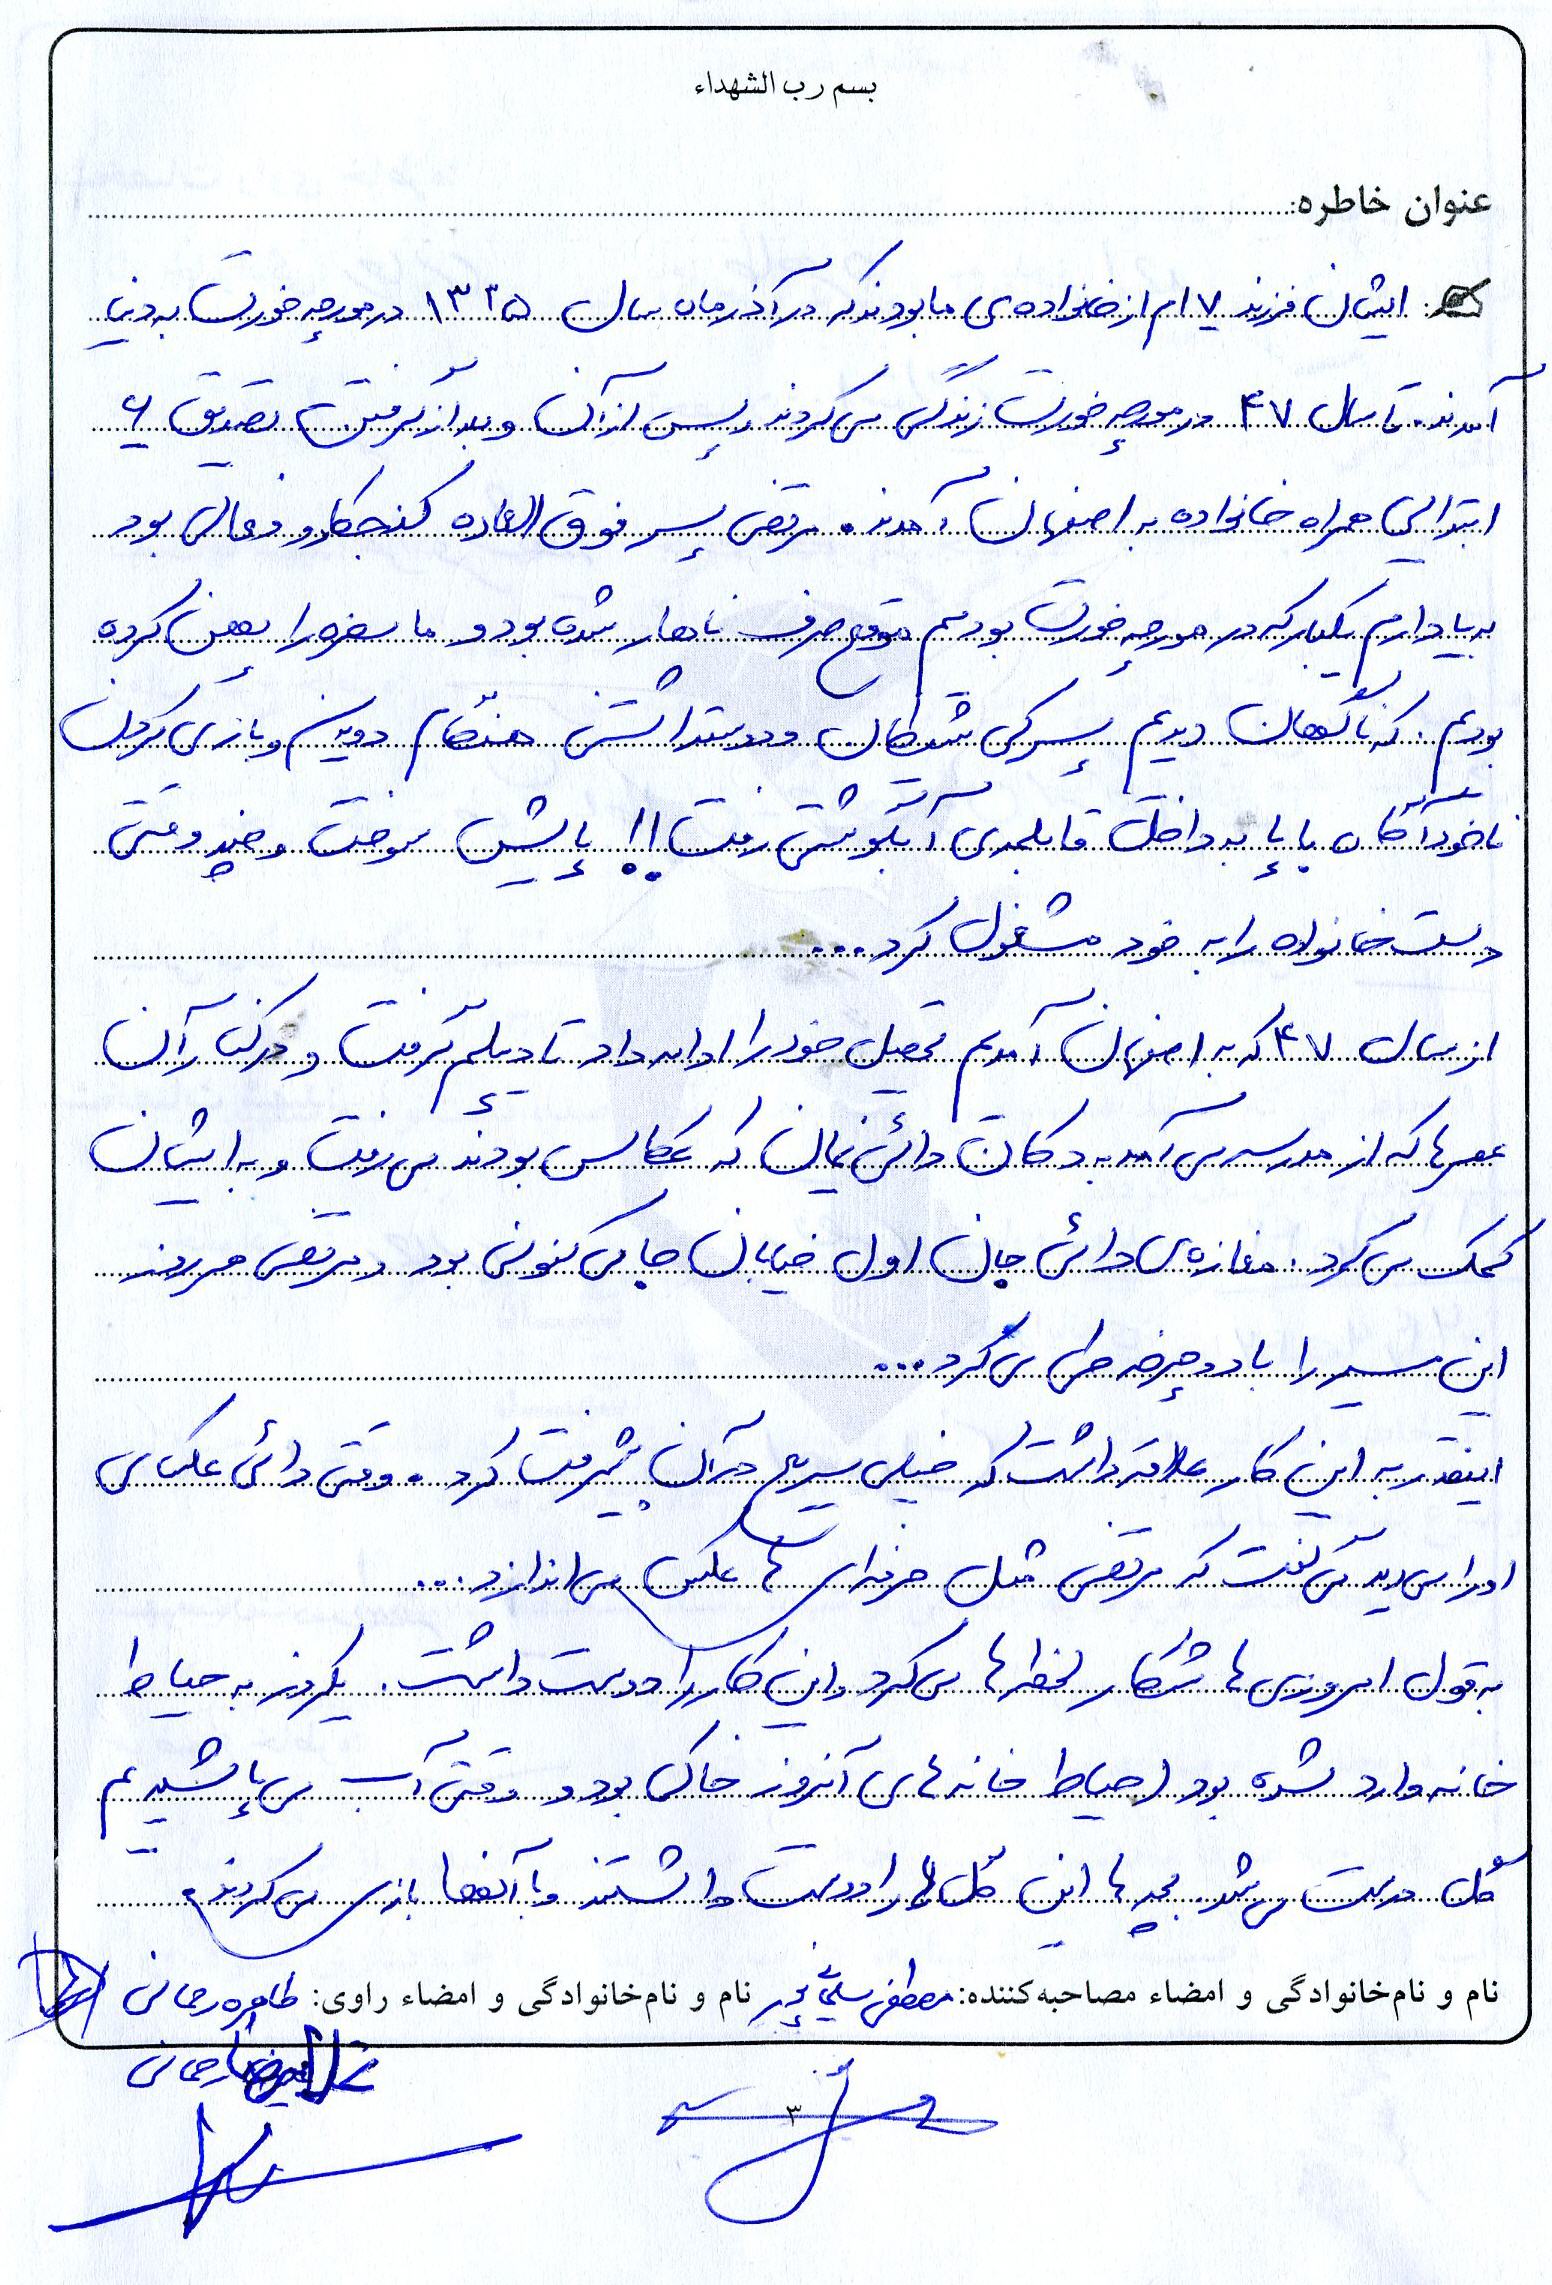 بسم رب الشهداء
عنوان خاطره:
ایشان فرزند ۷ ام از خانواده‌ی ما بودند که در آذر ماه سال ۱۳۳۵ در مورچه خورت به دنیا
آمدند. تا سال ۴۷ در مورچه خورت زندگی می‌کردند و پس از آن و بعد از گرفتن تصدیق ۶
ابتدائی همراه خانواده به اصفهان آمدند. مرتضی پسر فوق العاده کنجکاو و فعالی بود
به یاد دارم یکبار که در مورچه خورت بودیم موقع صرف ناهار شده بود و ما سفره را پهن کرده
بودیم. که ناگهان دیدیم پسرکی شیطان و دوستداشتنی هنگام دویدن و بازی کردن
ناخودآگاه با پا به داخل قابلمه‌ی آبگوشتی رفت!! پایش سوخت و چند وقتی
دست خانواده را به خود مشغول کرد...
از سال ۴۷ که به اصفهان آمدیم تحصیل خود را ادامه داد تا دیپلم گرفت و در کنار آن
عصرها که از مدرسه می‌آمد به دکان دائی‌مان که عکاس بودند می‌رفت و به ایشان
کمک می‌کرد. مغازه‌ی دائی جان اول خیابان جامی کنونی بود و مرتضی هر روز
این مسیر را با دوچرخه طی می‌کرد...
اینقدر به این کار علاقه داشت که خیلی سریع در آن پیشرفت کرد. وقتی دائی عکسهای
او را می‌دید می‌گفت که مرتضی مثل حرفه‌ای ها عکس می‌اندازد...
به قول امروزی ها شکار لحظه‌ها می‌کرد و این کار را دوست داشت. یکروز به حیاط
خانه وارد شده بود (حیاط خانه‌های آنروز خاکی بود و وقتی آب می‌پاشیدیم
گل درست می‌شد. بچه‌ها این گل‌ها را دوست داشتند و با آنها بازی می‌کردند.
نام و نام‌خانوادگی و امضاء مصاحبه‌کننده: مصطفی سلیمانی‌پور نام و نام‌خانوادگی و امضاء راوی: طاهره رحمانی
رحمانی
۳